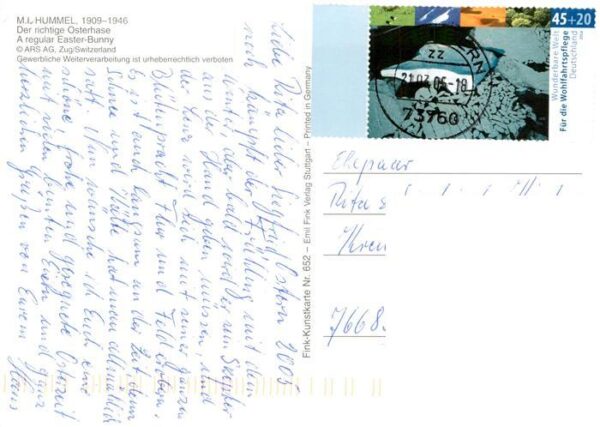 M.I. HUMMEL, 1909–1946
Der richtige Osterhase
A regular Easter-Bunny
© ARS AG, Zug/Switzerland
Gewerbliche Weiterverarbeitung ist urheberrechtlich verboten
Liebe Rita lieber Siegfried, Ostern 2005
noch kämpft der Frühling mit dem
Winter aber bald wird er ihm Szepter
aus der Hand geben müssen, und
der Lenz wird sich mit seiner ganzen
Blütenpracht Flur und Feld erobern.
Es ist auch langsam an der Zeit, denn
Sonne und Wärme hat man allmählich
satt. Nun wünsche ich Euch eine
schöne, frohe und gesegnete Osterzeit
mit vielen bunten Eiern und ganz
herzlichen Grüßen von Eurem
Hans
Fink-Kunstkarte Nr. 652 – Emil Fink Verlag Stuttgart – Printed in Germany
45+20
Deutschland
Wunderbare Welt
Für die Wohlfahrtspflege
zz
21.03.05-18
73760
Ehepaar
Rita
7668